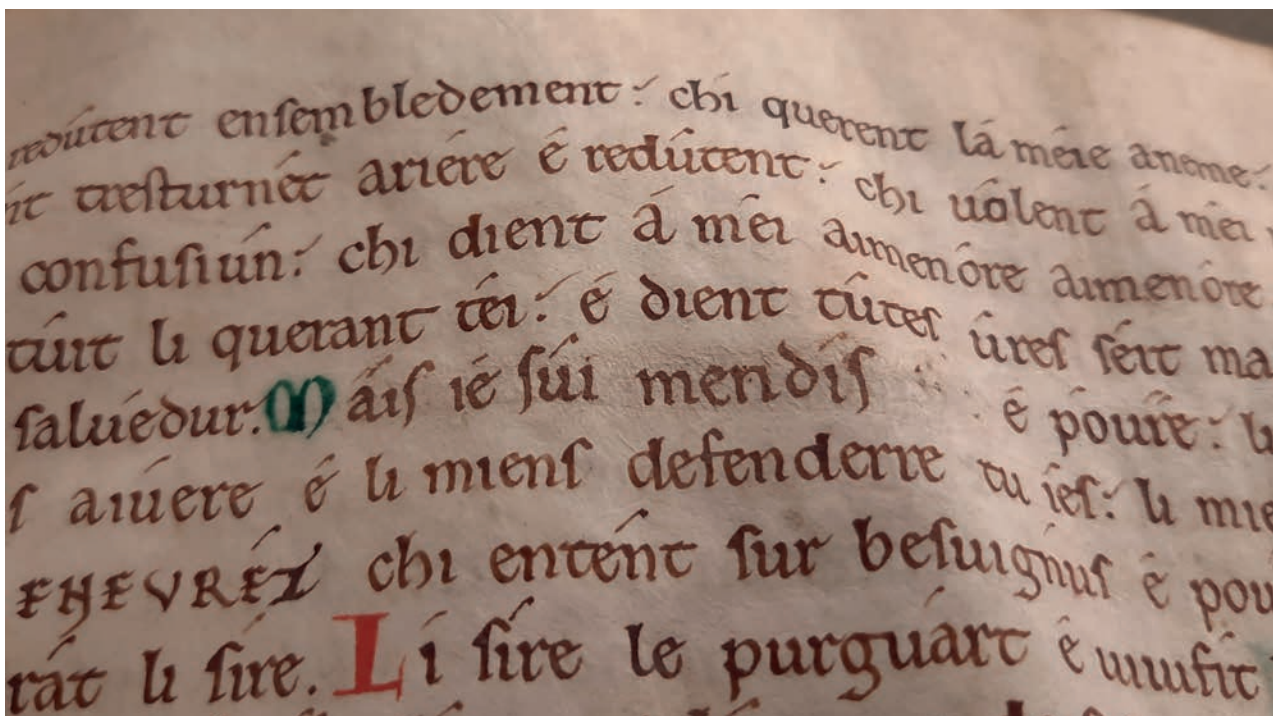 redútent ensembledement: chi querent lá méie aneme:
it tresturnét ariére é redútent: chi uólent á méi
confusiún: chi dient á méi aimenóre aimenóre
túit li querant téi: é dient tútes úres séit ma
saluedur. Máis ié súi mendís é poure: li
s aiúere é li miens defenderre tu ies: li mie
ENEVRÉZ chi entent sur besuignus é pou
rát li sire. Lí síre le purguárt é uiuifit